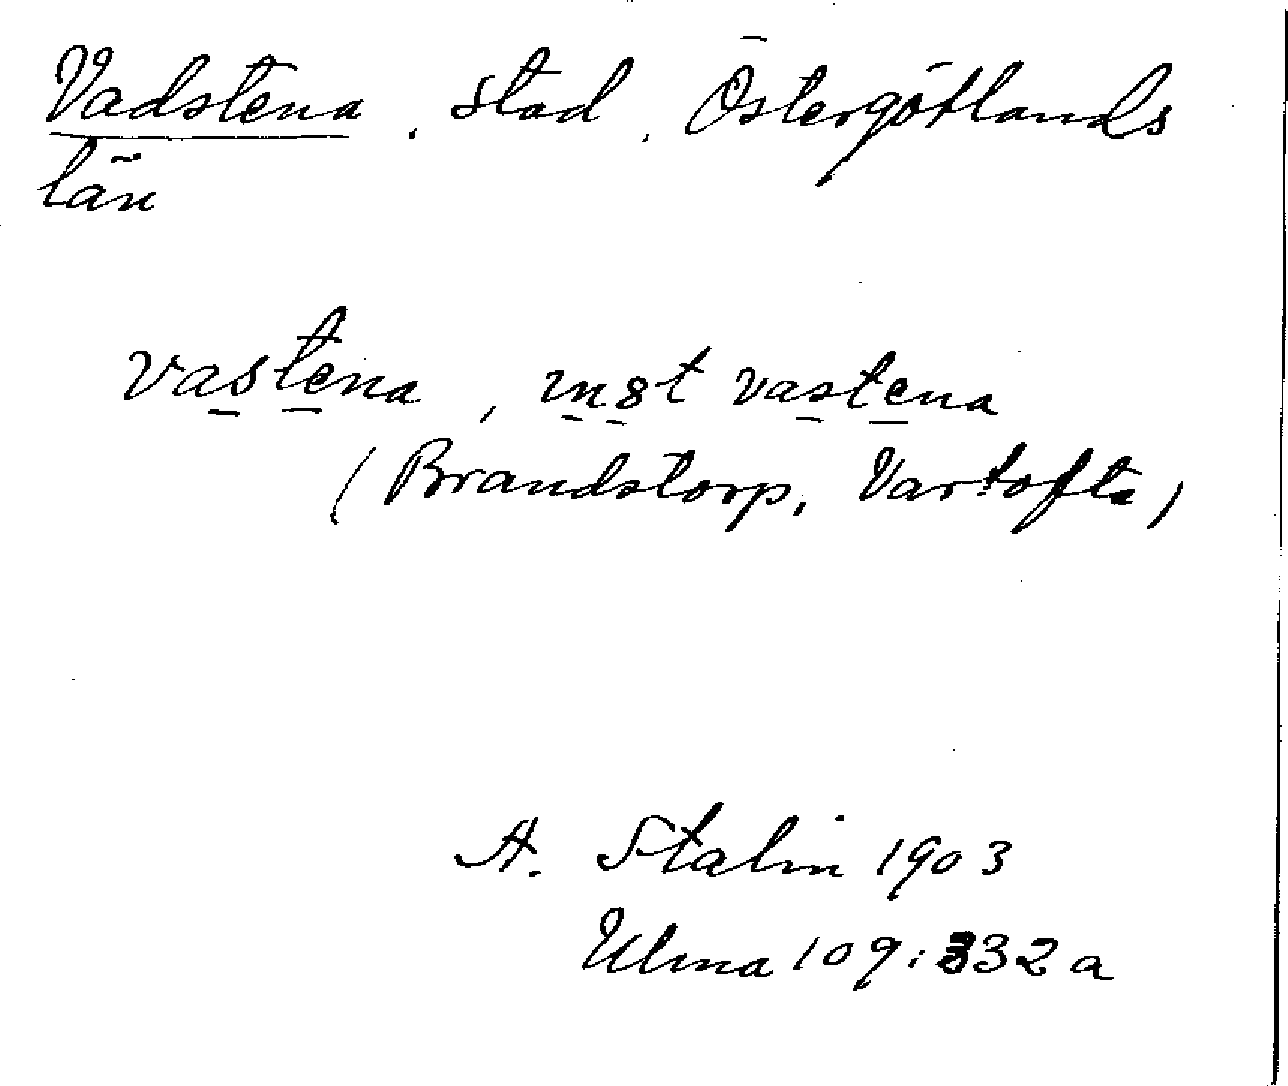 Vadstena. stad. Östergötlands
län
vastena, mst vastena
(Brandstorp, Vartofta)
A. Stalin 1903
Ulma 109:332 a